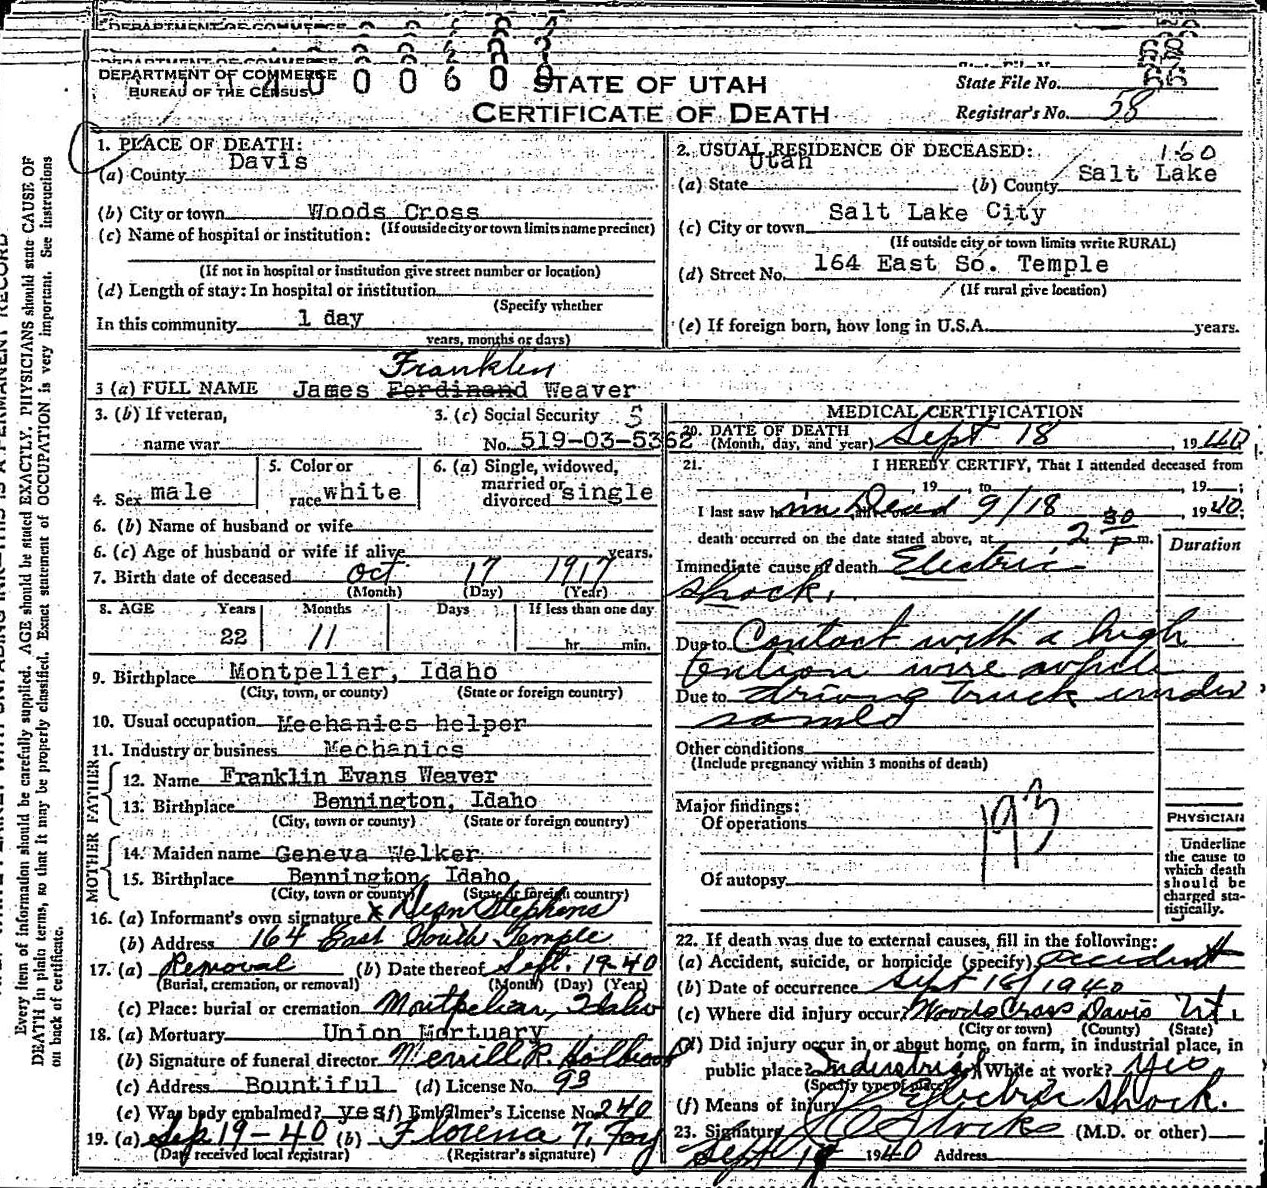 DEPARTMENT OF COMMERCE
BUREAU OF THE CENSUS
STATE OF UTAH
CERTIFICATE OF DEATH
State File No.
Registrar's No. 58
1. PLACE OF DEATH:
(a) County Davis
(b) City or town Woods Cross
(If outside city or town limits name precinct)
(c) Name of hospital or institution:
(If not in hospital or institution give street number or location)
(d) Length of stay: In hospital or institution
(Specify whether
In this community 1 day
years, months or days)
2. USUAL RESIDENCE OF DECEASED:
(a) State Utah (b) County Salt Lake
(c) City or town Salt Lake City
(If outside city or town limits write RURAL)
(d) Street No. 164 East So. Temple
(If rural give location)
(e) If foreign born, how long in U.S.A. years.
Franklin
3 (a) FULL NAME James Ferdinand Weaver
3. (b) If veteran,
name war
3. (c) Social Security
No. 519-03-5362
4. Sex male
5. Color or
race white
6. (a) Single, widowed,
married or
divorced single
6. (b) Name of husband or wife
6. (c) Age of husband or wife if alive years.
7. Birth date of deceased Oct 17 1917
(Month) (Day) (Year)
8. AGE Years Months Days If less than one day
22 11 hr. min.
9. Birthplace Montpelier, Idaho
(City, town, or county) (State or foreign country)
10. Usual occupation Mechanics helper
11. Industry or business Mechanics
FATHER
12. Name Franklin Evans Weaver
13. Birthplace Bennington, Idaho
(City, town or county) (State or foreign country)
MOTHER
14. Maiden name Geneva Welker
15. Birthplace Bennington, Idaho
(City, town or county) (State or foreign country)
16. (a) Informant's own signature x Dean Stephens
(b) Address 164 East South Temple
17. (a) Removal (b) Date thereof Sept. 19-40
(Burial, cremation, or removal) (Month) (Day) (Year)
(c) Place: burial or cremation Montpelier, Idaho
18. (a) Mortuary Union Mortuary
(b) Signature of funeral director Merrill R. Holbrook
(c) Address Bountiful (d) License No. 93
(e) Was body embalmed? yes (f) Embalmer's License No. 240
19. (a) Sep 19-40 (b) Florence T. Foy
(Day received local registrar) (Registrar's signature)
MEDICAL CERTIFICATION
20. DATE OF DEATH
(Month, day, and year) Sept 18 1940
21. I HEREBY CERTIFY, That I attended deceased from
, 19 , to , 19 ;
I last saw him Dead 9/18, 1940.
death occurred on the date stated above, at 2 30 P m.
Duration
Immediate cause of death Electric
shock.
Due to Contact with a high
tention wire while
Due to driving truck under
same
Other conditions
(Include pregnancy within 3 months of death)
Major findings:
Of operations
193
Of autopsy
PHYSICIAN
Underline
the cause to
which death
should be
charged sta-
tistically.
22. If death was due to external causes, fill in the following:
(a) Accident, suicide, or homicide (specify) accident
(b) Date of occurrence Sept 18/1940
(c) Where did injury occur? Woods Cross Davis Ut.
(City or town) (County) (State)
(d) Did injury occur in or about home, on farm, in industrial place, in
public place? Industrial While at work? Yes
(Specify type of place)
(f) Means of injury Electric shock.
23. Signature (M.D. or other)
Sept 19 1940 Address
Every item of information should be carefully supplied. AGE should be stated EXACTLY. PHYSICIANS should state CAUSE OF
DEATH in plain terms, so that it may be properly classified. Exact statement of OCCUPATION is very important. See instructions
on back of certificate.